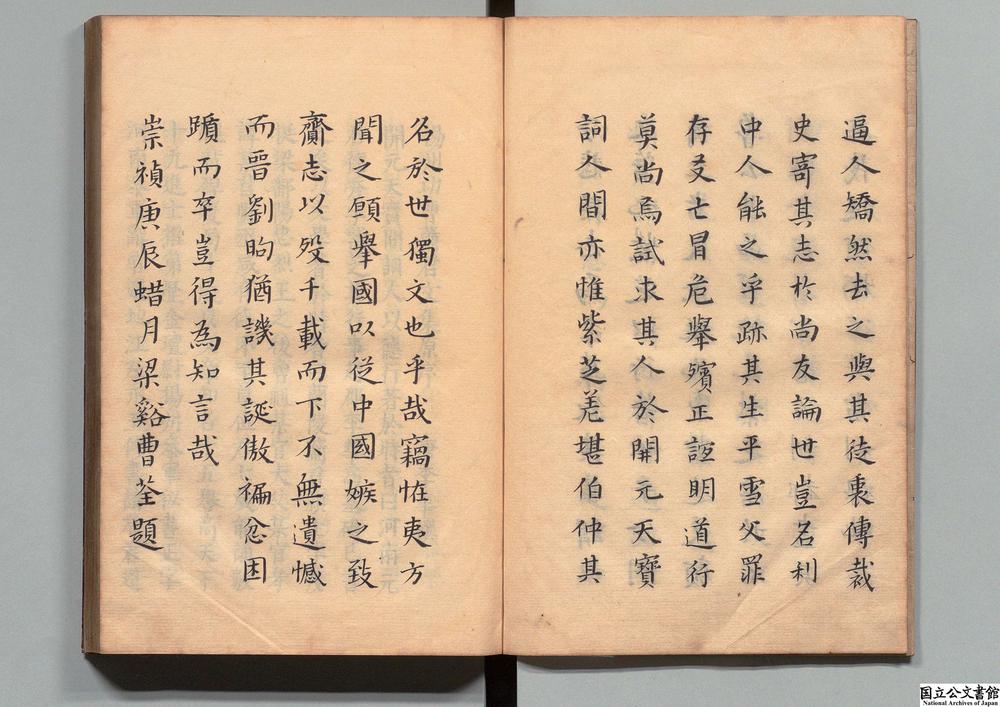 逼人矯然去之與其徒裹傳裁
史寄其志於尚友論世豈名利
中人能之乎跡其生平雪父罪
存友亡冒危舉殯正誼明道行
莫尚焉試求其人於開元天寶
詞人間亦惟紫芝差堪伯仲其
名於世獨文也乎哉竊恠夷方
聞之願舉國以從中國嫉之致
齎志以殁千載而下不無遺憾
而晉劉昫猶譏其誕傲褊忿困
躓而卒豈得為知言哉
崇禎庚辰蜡月梁谿曹荃題
国立公文書館
National Archives of Japan